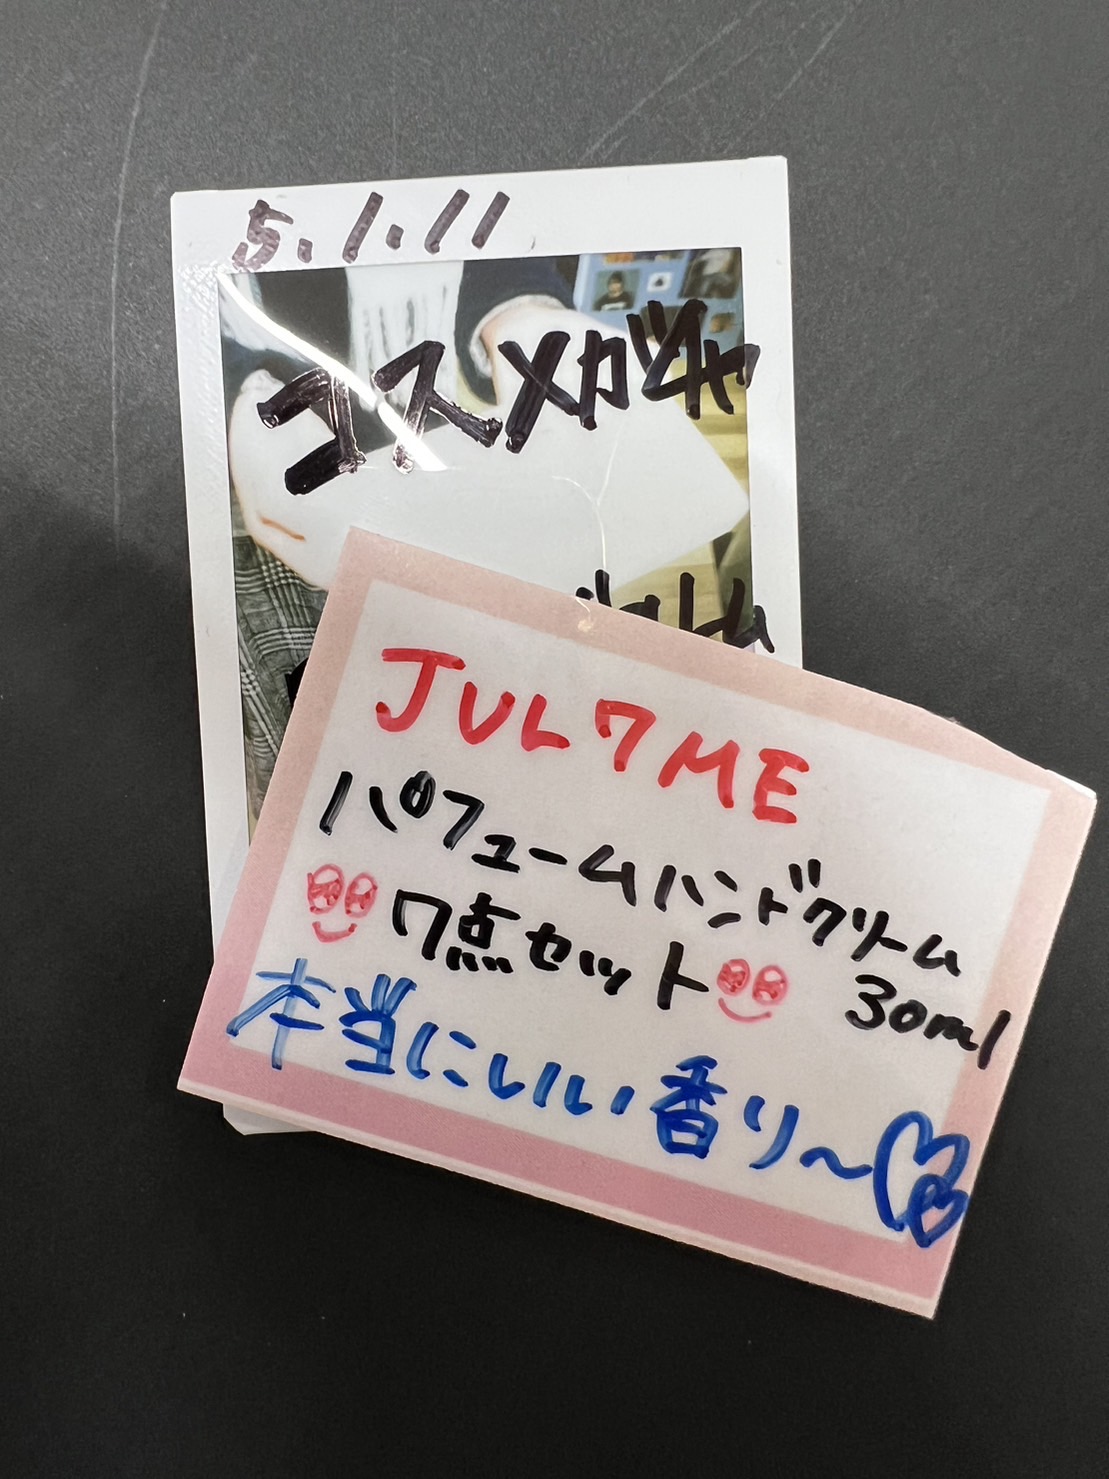 5.1.11
コスメガチャ
JUL7ME
パフュームハンドクリーム
7点セット 30ml
本当にいい香り〜